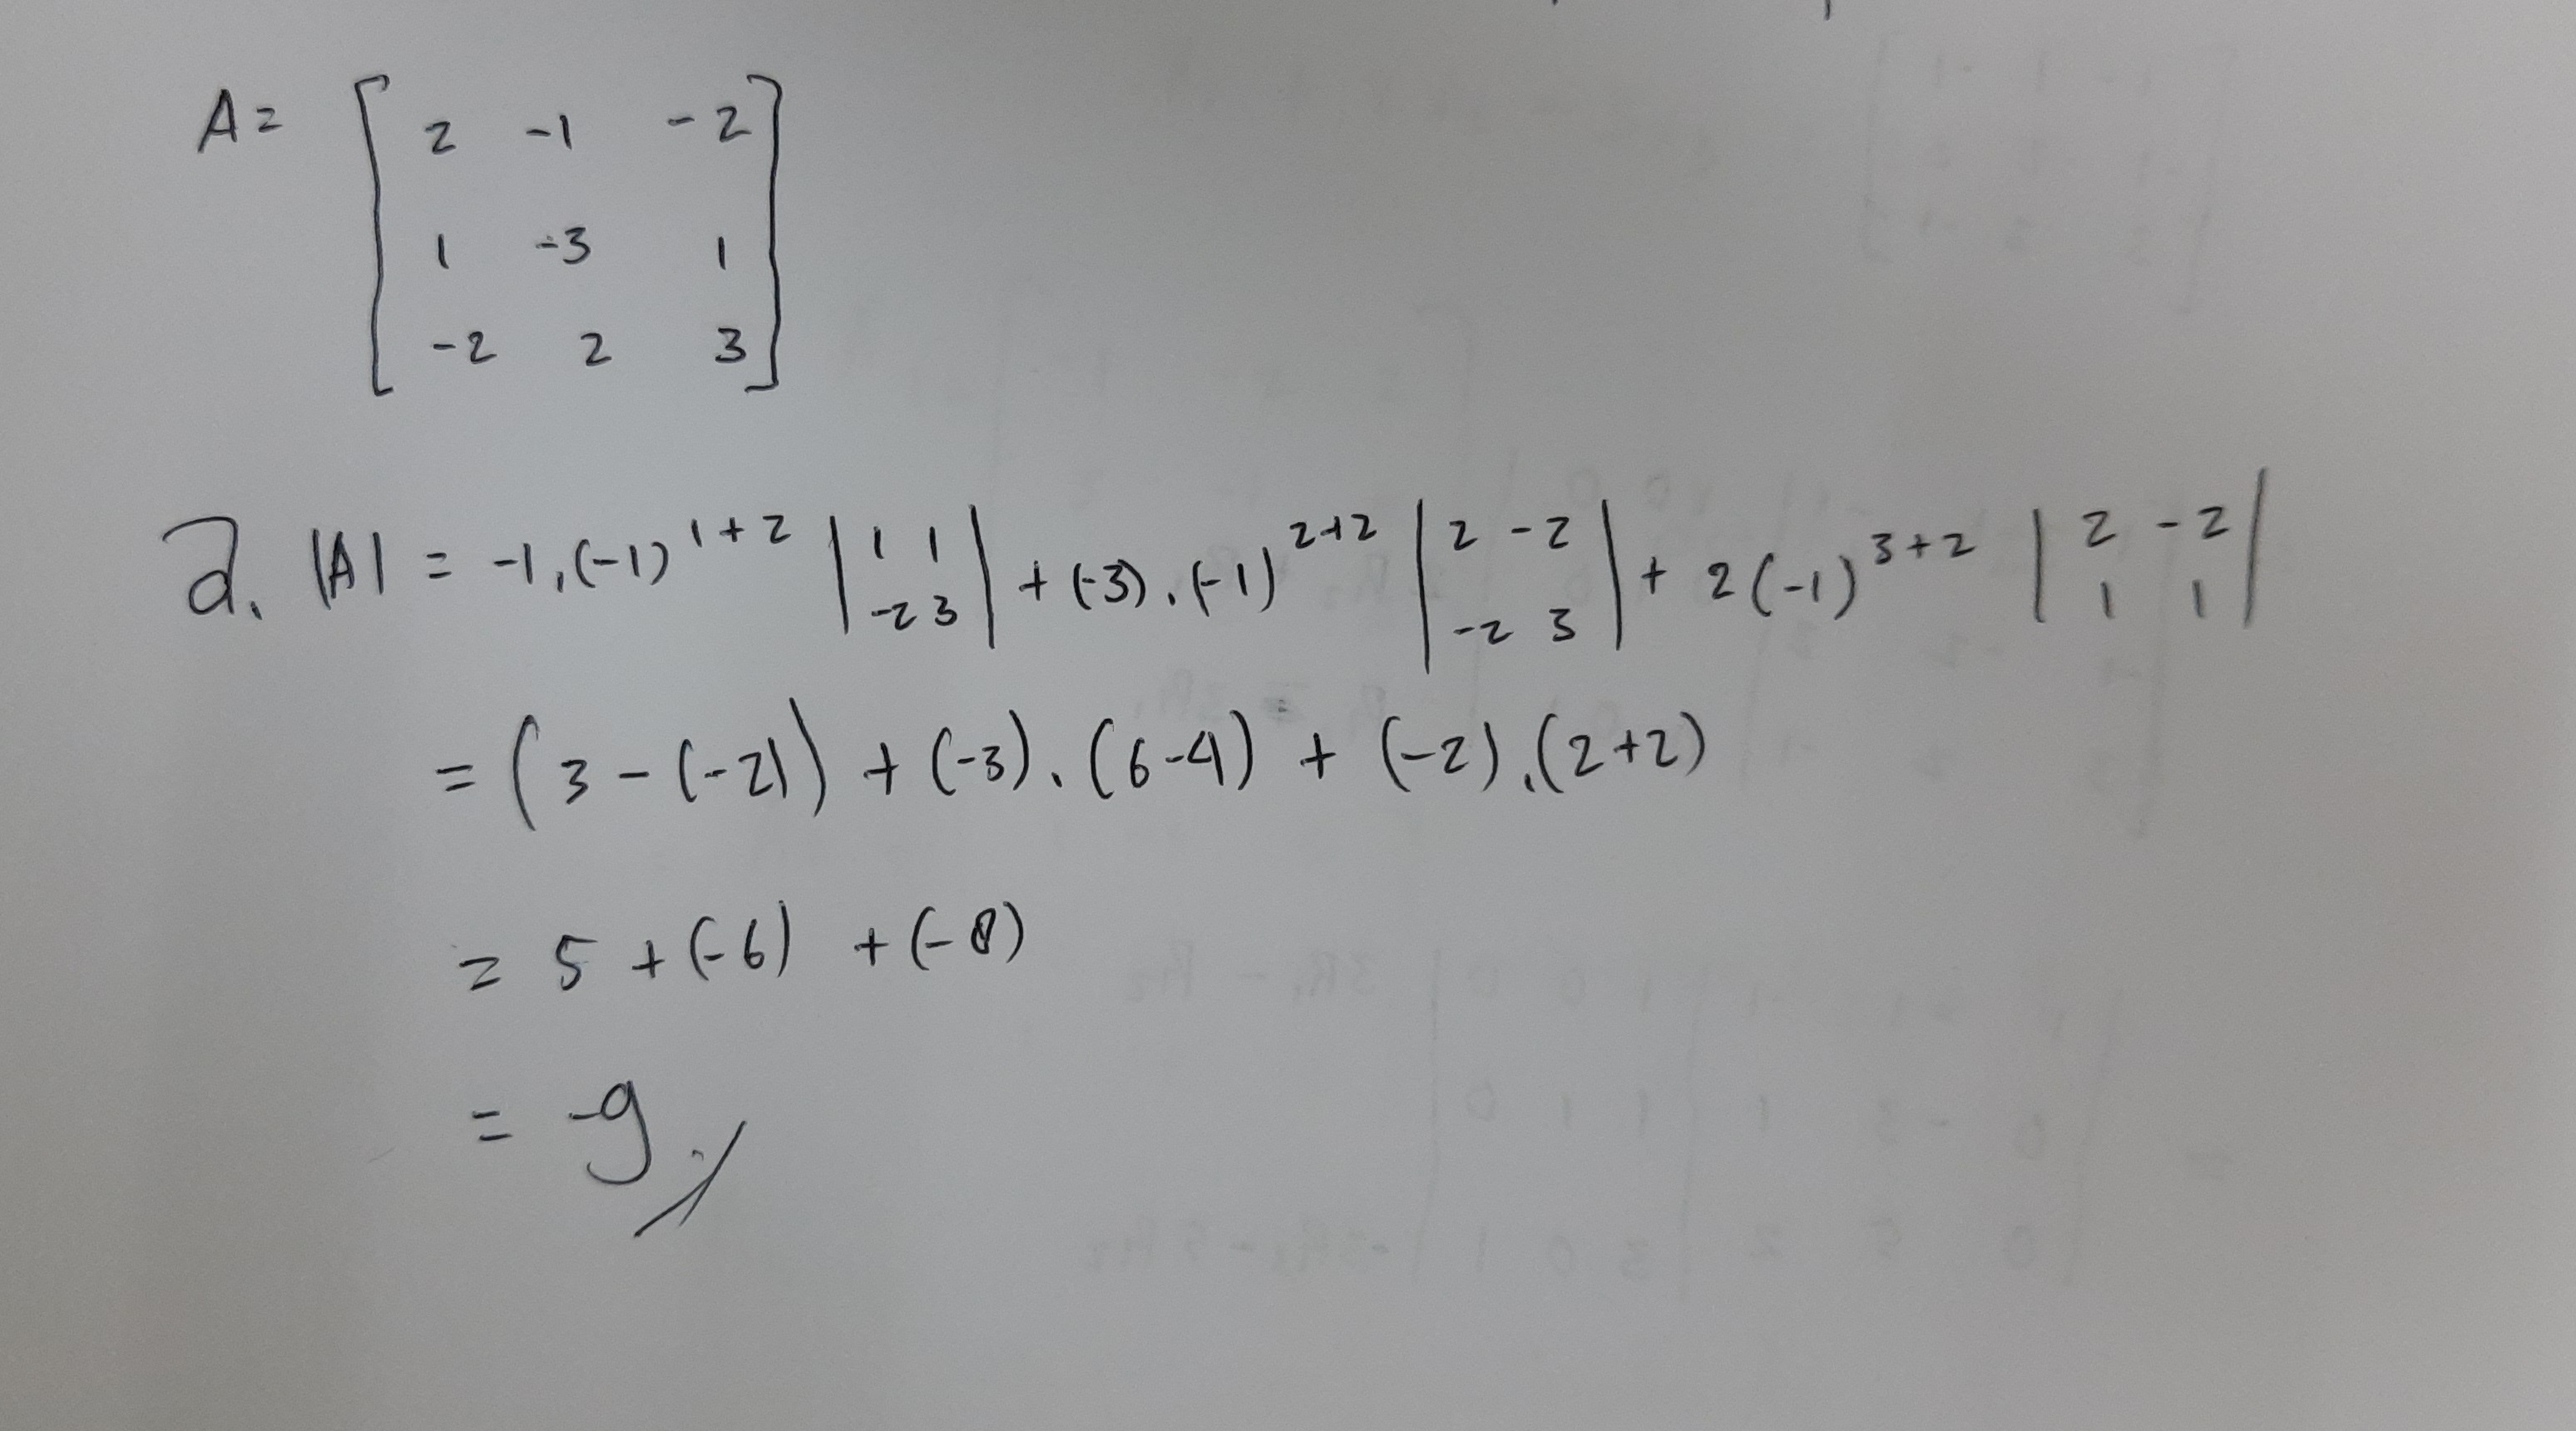 A = [ 2 -1 -2
1 -3 1
-2 2 3 ]
a. |A| = -1.(-1)^{1+2} | 1 1 ; -2 3 | + (-3).(-1)^{2+2} | 2 -2 ; -2 3 | + 2(-1)^{3+2} | 2 -2 ; 1 1 |
= (3-(-2)) + (-3).(6-4) + (-2).(2+2)
= 5 + (-6) + (-8)
= -9